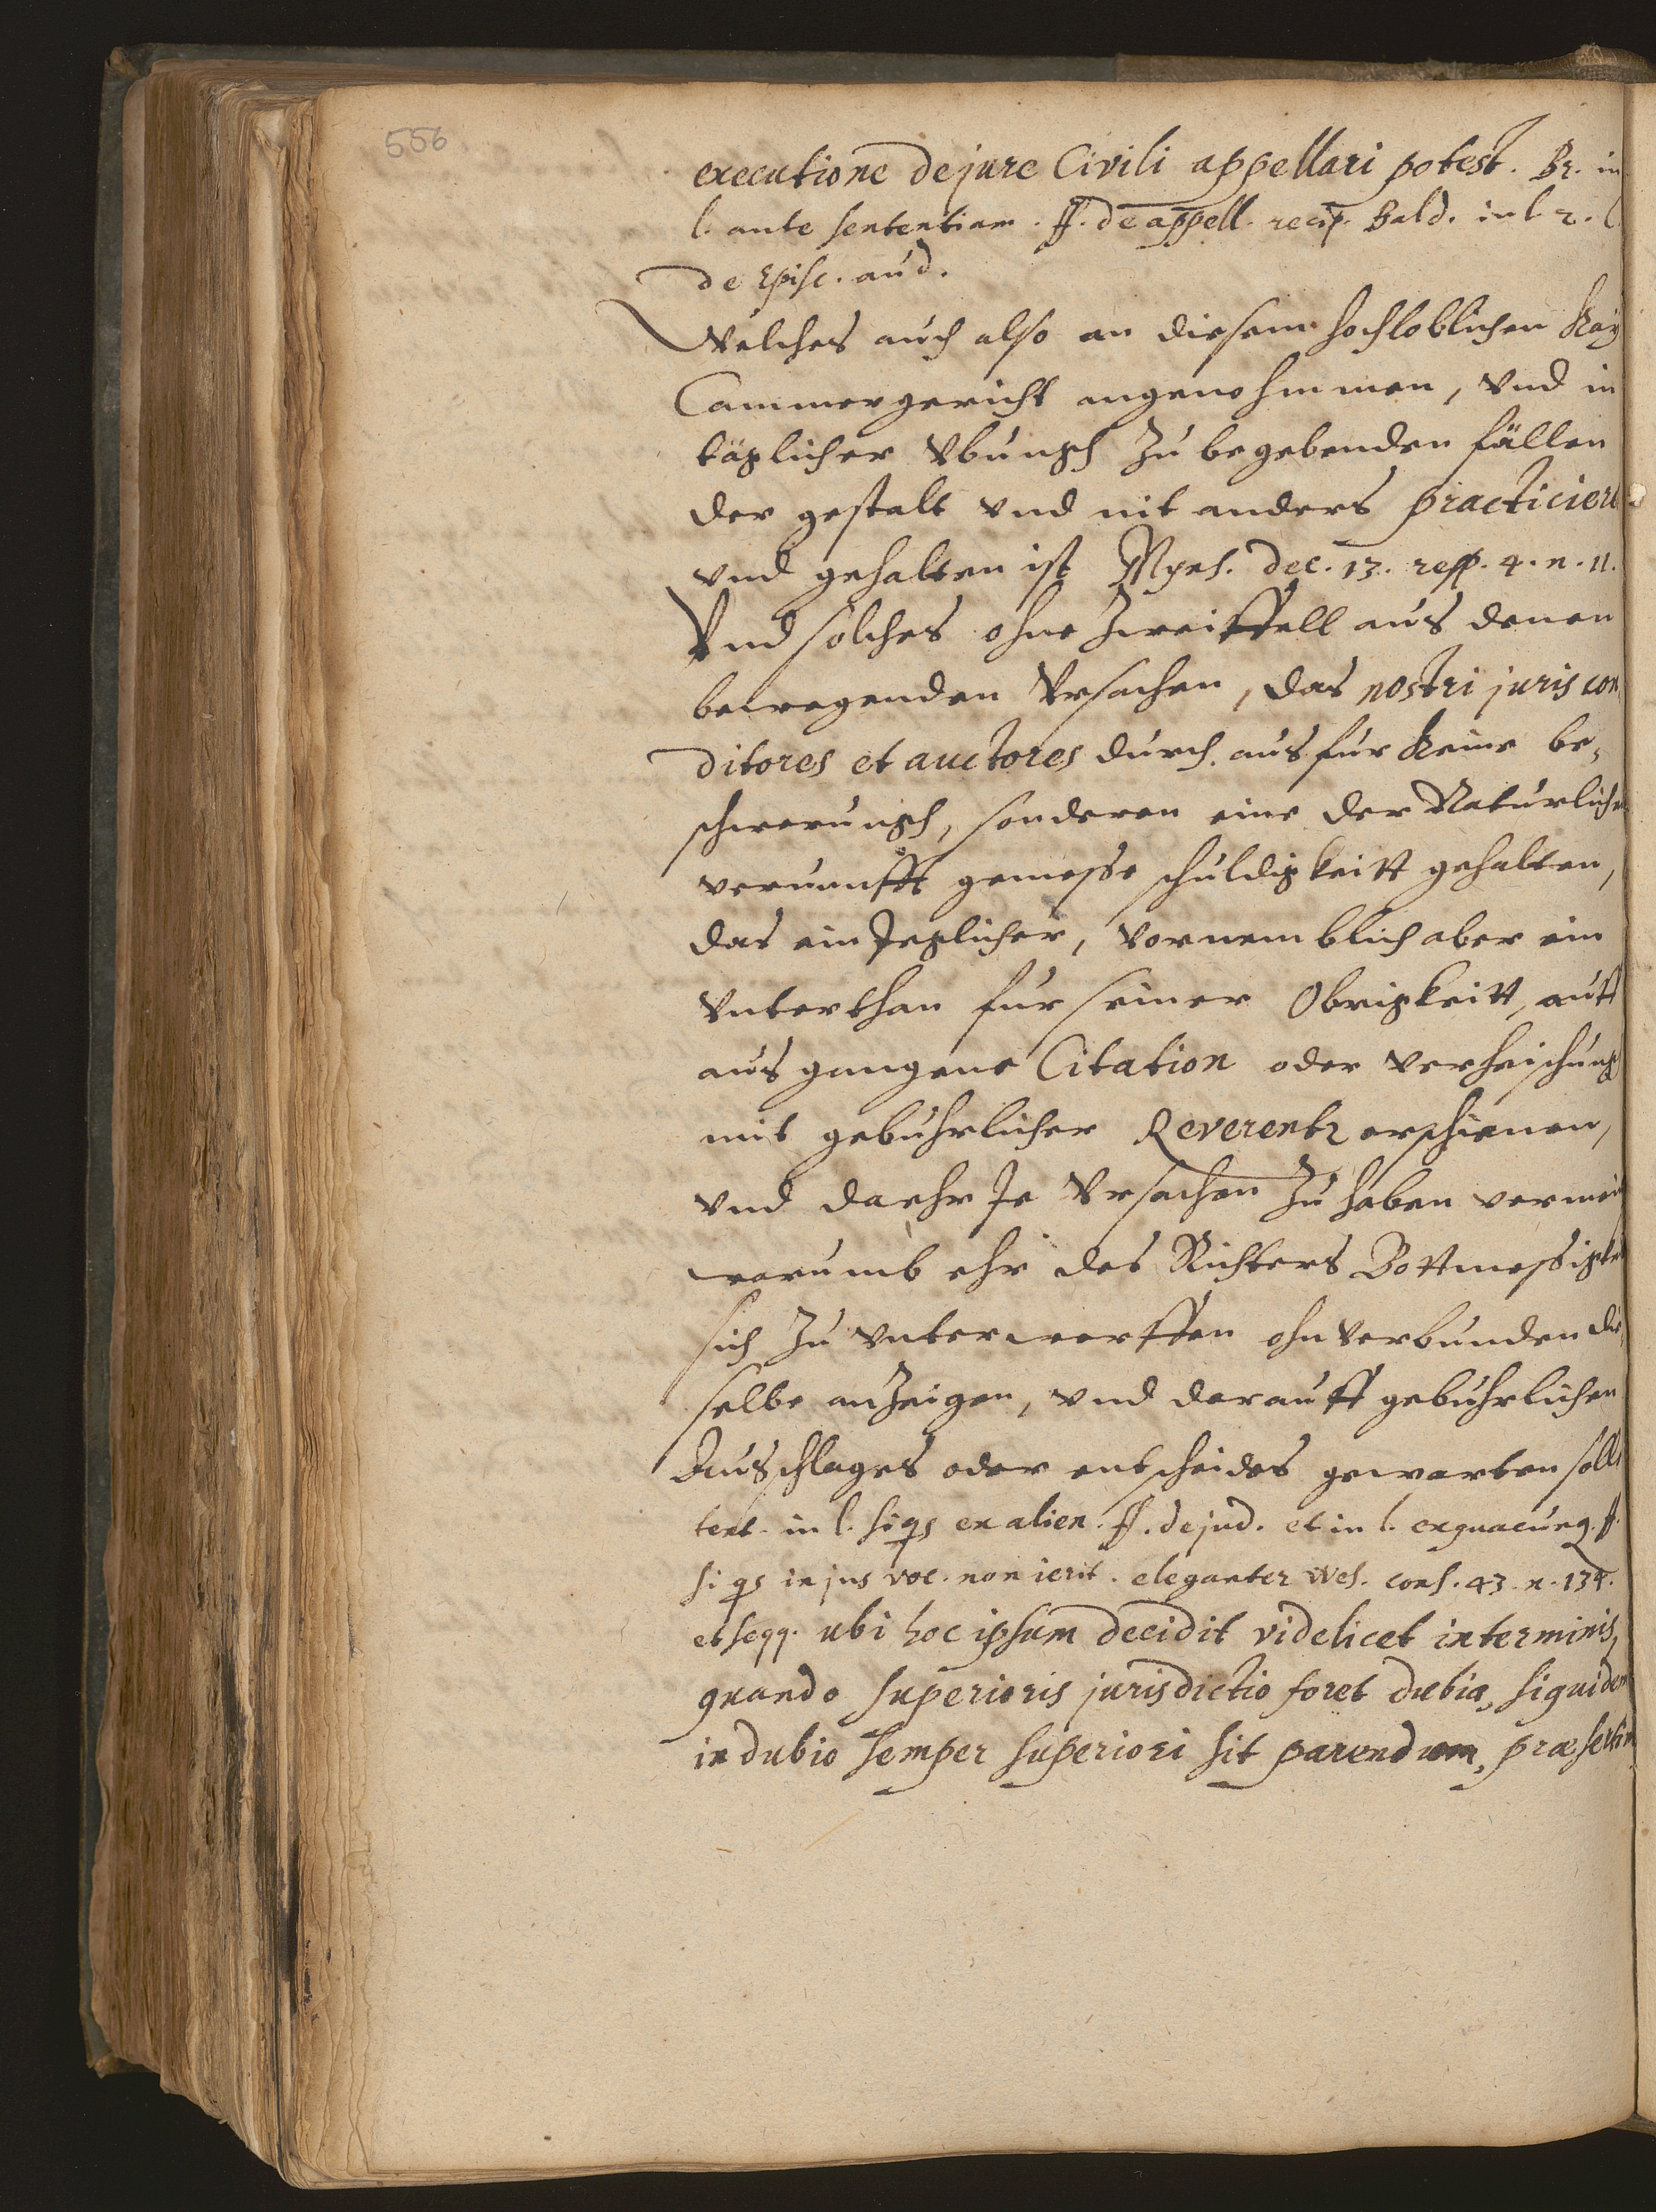 556
executione de jure Civili appellari potest. Br. in
l. ante sententiam. ff. de appell. recip. Bald. in l. 2. C
de Episc. aud.
Welches auch also an diesem hochloblichen Kay
Cammergericht angenohmmen, vnd in
täglicher vbungh zu begebenden fällen
der gestalt vnd nit anders practiciert
vnd gehalten ist Myns. dec. 13. resp. 4. n. 11.
Vnd solches ohne zweiffell aus denen
bewegenden Vrsachen, das nostri juris con
ditores et auctores durch aus fur keine be„
schwerungh, sonderen eine der Naturlichen
vernunfft gemesse schuldigkeitt gehalten,
das ein Jeglicher, vornemblich aber ein
vnterthan fur seiner Obrigkeitt, auff
aus gangene Citation oder verheischung
mit gebuhrlicher Reverentz erschienen,
vnd da ehr Je Vrsachen zu haben vermein
warumb ehr des Richters Bottmessigkei
sich zu vnterwerffen ohnverbunden die„
selbe anzeigen, vnd darauff gebuhrlichen
Ausschlages oder entscheides gewarten soll
text. in l. si qs ex alien. ff. de jud. et in l. ex quacunq. ff.
si qs in jus voc. non ierit. eleganter Wes. cons. 43. n. 134.
et seqq. ubi hoc ipsum decidit videlicet in terminis,
quando superioris jurisdictio foret dubia, siquidem
in dubio semper superiori sit parendum, præsertim